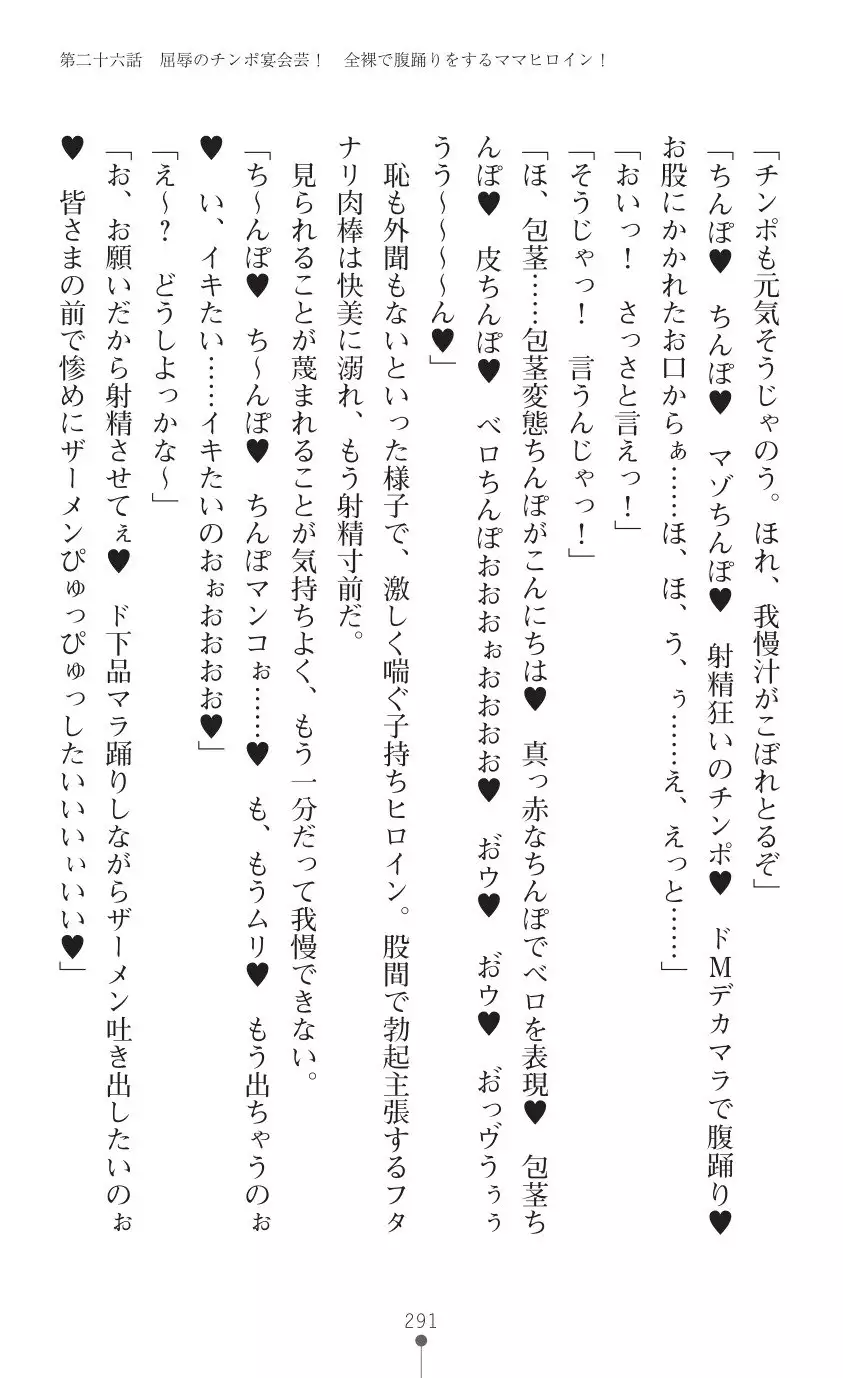 第二十六話　屈辱のチンポ宴会芸！　全裸で腹踊りをするママヒロイン！
「チンポも元気そうじゃのう。ほれ、我慢汁がこぼれとるぞ」
「ちんぽ♥　ちんぽ♥　マゾちんぽ♥　射精狂いのチンポ♥　ドMデカマラで腹踊り♥
お股にかかれたお口からぁ……ほ、ほ、う、ぅ……え、えっと……」
「おいっ！　さっさと言えっ！」
「そうじゃっ！　言うんじゃっ！」
「ほ、包茎……包茎変態ちんぽがこんにちは♥　真っ赤なちんぽでベロを表現♥　包茎ち
んぽ♥　皮ちんぽ♥　ベロちんぽおおおぉおおおお♥　お゛ウ♥　お゛ウ♥　お゛っヴうぅぅ
うう～～～～ん♥」
　恥も外聞もないといった様子で、激しく喘ぐ子持ちヒロイン。股間で勃起主張するフタ
ナリ肉棒は快美に溺れ、もう射精寸前だ。
　見られることが蔑まれることが気持ちよく、もう一分だって我慢できない。
「ち～んぽ♥　ち～んぽ♥　ちんぽマンコぉ……♥　も、もうムリ♥　もう出ちゃうのぉ
♥　い、イキたい……イキたいのおぉおおおお♥」
「え～？　どうしよっかな～」
「お、お願いだから射精させてぇ♥　ド下品マラ踊りしながらザーメン吐き出したいのぉ
♥　皆さまの前で惨めにザーメンぴゅっぴゅっしたいいいぃいい♥」
291